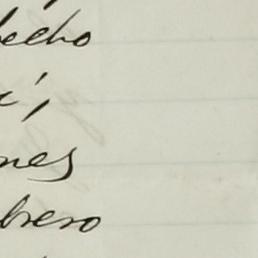 hecho
í,
nes
brero